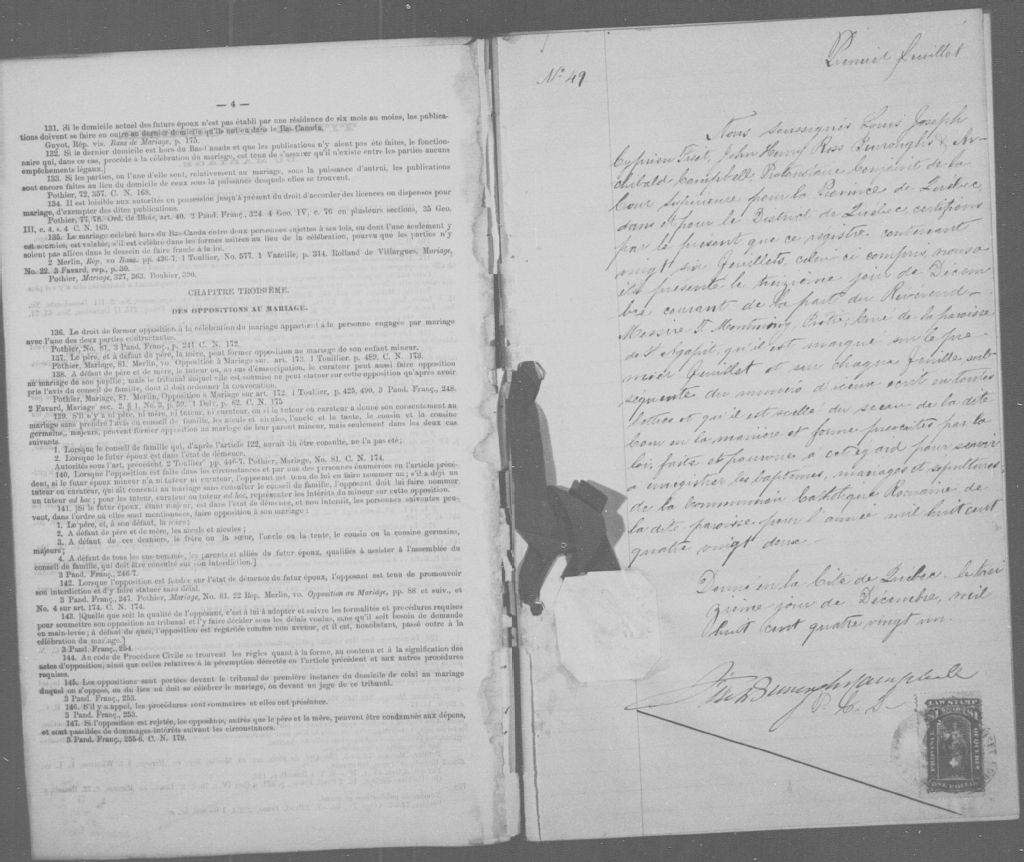 — 4 —
131. Si le domicile actuel des futurs époux n'est pas établi par une résidence de six mois au moins, les publica-
tions doivent se faire en outre au dernier domicile qu'ils ont eu dans le Bas-Canada.
Guyot, Rép. vis. Bans de Mariage, p. 175.
132. Si le dernier domicile est hors du Bas-Canada et que les publications n'y aient pas été faites, le fonction-
naire qui, dans ce cas, procède à la célébration du mariage, est tenu de s'assurer qu'il n'existe entre les parties aucuns
empêchements légaux.]
133. Si les parties, ou l'une d'elles sont, relativement au mariage, sous la puissance d'autrui, les publications
sont encore faites au lieu du domicile de ceux sous la puissance desquels elles se trouvent.
Pothier, 72, 357. C. N. 168.
134. Il est loisible aux autorités en possession jusqu'à présent du droit d'accorder des licences ou dispenses pour
mariage, d'exempter des dites publications.
Pothier, 77, 78. Ord. de Blois, art. 40. 2 Pand. Franç., 324. 4 Geo. IV, c. 76 en plusieurs sections, 35 Geo.
III, c. 4. s. 4 C. N. 169.
135. Le mariage célébré hors du Bas-Canada entre deux personnes sujettes à ses lois, ou dont l'une seulement y
est soumise, est valable, s'il est célébré dans les formes usitées au lieu de la célébration, pourvu que les parties n'y
soient pas allées dans le dessein de faire fraude à la loi.
2 Merlin, Rép, vo Bans. pp. 436-7. 1 Toullier, No. 577. 1 Vazeille, p. 314. Rolland de Villargues, Mariage,
No. 22. 3 Favard, rep., p. 30.
Pothier, Mariage, 327, 363. Bouhier, 390.
CHAPITRE TROISIÈME.
DES OPPOSITIONS AU MARIAGE.
136. Le droit de former opposition à la célébration du mariage appartient à la personne engagée par mariage
avec l'une des deux parties contractantes.
Pothier, No. 81. 3 Pand. Franç., p. 241 C. N. 172.
137. Le père, et à défaut de père, la mère, peut former opposition au mariage de son enfant mineur.
Pothier, Mariage, 81. Merlin, vo. Opposition à Mariage sur. art. 173. 1 Toullier. p. 489. C. N. 173.
138. A défaut de père et de mère, le tuteur ou, au cas d'émancipation, le curateur peut aussi faire opposition
au mariage de son pupille; mais le tribunal auquel elle est soumise ne peut statuer sur cette opposition qu'après avoir
pris l'avis du conseil de famille, dont il doit ordonner la convocation.
Pothier, Mariage, 81. Merlin, Opposition à Mariage sur art. 172. 1 Toullier, p. 425, 490, 3 Pand. Franç., 248.
2 Favard, Mariage sec. 2. § 1. No. 3, p. 59. 1 Delv. p. 62. C. N. 175
139. S'il n'y a ni père, ni mère, ni tuteur, ni curateur, ou si le tuteur ou curateur a donné son consentement au
mariage sans prendre l'avis du conseil de famille, les aïeuls et aïeules, l'oncle et la tante, le cousin et la cousine
germains, majeurs, peuvent former opposition au mariage de leur parent mineur, mais seulement dans les deux cas
suivants
1. Lorsque le conseil de famille qui, d'après l'article 122, aurait dû être consulté, ne l'a pas été;
2. Lorsque le futur époux est dans l'état de démence.
Autorités sous l'art. précédent. 2 Toullier pp. 446-7. Pothier, Mariage, No. 81. C. N. 174.
140. Lorsque l'opposition est faite dans les circonstances et par une des personnes énumérées en l'article précé-
dent, si le futur époux mineur n'a ni tuteur ni curateur, l'opposant est tenu de lui en faire nommer un; s'il a déjà un
tuteur ou curateur, qui ait consenti au mariage sans consulter le conseil de famille, l'opposant doit lui faire nommer
un tuteur ad hoc; pour les tuteur, curateur ou tuteur ad hoc, représenter les intérêts du mineur sur cette opposition.
141. [Si le futur époux, étant majeur, est dans l'état de démence, et non interdit, les personnes suivantes peu-
vent, dans l'ordre où elles sont mentionnées, faire opposition à son mariage:
1. Le père, et, à son défaut, la mère;
2. A défaut de père et de mère, les aïeuls et aïeules;
3. A défaut de ces derniers, le frère ou la sœur, l'oncle ou la tante, le cousin ou la cousine germains,
majeurs;
4. A défaut de tous les sus-nommés, les parents et alliés du futur époux, qualifiés à assister à l'assemblée du
conseil de famille, qui doit être consulté sur son interdiction.]
3 Pand. Franç., 246-7.
142. Lorsque l'opposition est fondée sur l'état de démence du futur époux, l'opposant est tenu de promouvoir
son interdiction et d'y faire statuer sans délai.
3 Pand. Franç., 247. Pothier, Mariage, No. 81. 22 Rép. Merlin, vo. Opposition au Mariage, pp. 88 et suiv., et
No. 4 sur art. 174. C. N. 174.
143. [Quelle que soit la qualité de l'opposant, c'est à lui à adopter et suivre les formalités et procédures requises
pour soumettre son opposition au tribunal et l'y faire décider sous les délais voulus, sans qu'il soit besoin de demande
en main-levée; à défaut de quoi, l'opposition est regardée comme non avenue, et il est, nonobstant, passé outre à la
célébration du mariage.]
3 Pand. Franç., 254.
144. Au code de Procédure Civile se trouvent les règles quant à la forme, au contenu et à la signification des
actes d'opposition, ainsi que celles relatives à la péremption décrétée en l'article précédent et aux autres procédures
requises.
145. Les oppositions sont portées devant le tribunal de première instance du domicile de celui au mariage
duquel on s'oppose, ou du lieu où doit se célébrer le mariage, ou devant un juge de ce tribunal.
3 Pand. Franç., 253.
146. S'il y a appel, les procédures sont sommaires et elles ont préséance.
3 Pand. Franç., 253.
147. Si l'opposition est rejetée, les opposants, autres que le père et la mère, peuvent être condamnés aux dépens,
et sont passibles de dommages-intérêts suivant les circonstances.
3 Pand. Franç., 255-6. C. N. 179.
Premier feuillet
No. 49
Nous Soussignés Louis Joseph
Cyprien Fiset, John Henry Ross Burroughs & Ar-
chibald Campbell Protonotaire Conjoint de la
Cour Supérieure pour la Province de Québec
dans et pour le District de Québec, certifions
par le présent que ce registre contenant
vingt six feuillets, celui ci compris, nous a
été présenté le treizième jour de Décem
bre courant de la part du Révérend
Messire T. Montminy, Prêtre, Curé de la paroisse
de St Agapit, qu'il est marqué sur le pre
mier feuillet et sur chaque feuille sub-
séquente du numéro d'icelui écrit en toutes
lettres et qu'il est scellé du sceau de la dite
Cour en la manière et forme prescrites par la
loi, faits et pourvus à cet égard pour servir
à enregistrer les baptêmes, mariages et sépultures
de la Communion Catholique Romaine de
la dite paroisse pour l'année mil huit cent
quatre vingt deux.
Donné en la Cité de Québec, le trei
zième jour de Décembre, mil
huit cent quatre vingt un.
Fiset Burroughs Campbell
P. C. S.
$1 LAW STAMP $1
PROVINCE
OF QUEBEC
ONE DOLLAR